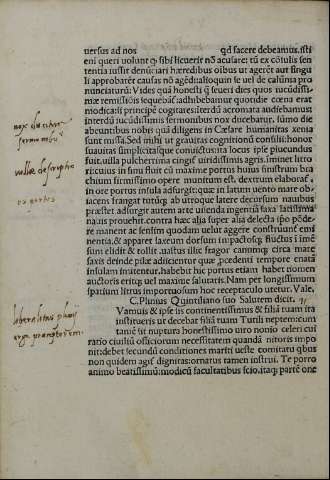 uersus ad nos qd facere debeamus. isti
eni queri uolunt q̃ sibi licuerit nõ acusare: tũ ex cõsilis sen
tentia iussit denũciari hæredibus oĩbus ut agerẽt aut singu
li approbarẽt causas nõ agẽdi: alioquin se uel de calũnia pro
nunciaturũ. Vides quã honesti q̃ seueri dies quos iucũdissi-
niæ remissiões sequebãt adhibebamur quotidie cœna erat
modica: si principẽ cogitares: iterdũ acromata audiebamus:
interdũ iucũdissimis sermonibus nox ducebatur. sũmo die
abeuntibus nobis quã diligens in Cæsare humanitas xenia
sunt missa. Sed mihi ut grauitas cognitionũ consilii: honor
suauitas simplicitasq̃ conuictus: ita locus ipse piucundus
fuit. uilla pulcherrima cingit̃ uiridissimis agris. iminet litto
ri: cuius in sinu fuit cũ maxime portus huius sinistrum bra
chium firmissimo opere munitum est. dextrum elaborat̃.
in ore portus insula adsurgit: quæ in latum uento mare ob-
iacens frangat tutũq̃ ab utroque latere decursum nauibus
præstet. adsurgit autem arte uisenda ingentia saxa latissima
nauis prouehit. contra hæc alia super alia delecta ipo põde
re manent ac sensim quodam uelut aggere construunt̃ emi
nentia, & apparet saxeum dorsum impactosq̃ fluctus i imẽ
sum elidit & tollit. uastus illic fragor canumq̃ circa mare
saxis deinde pilæ adiicientur quæ pcedenti tempore enatã
insulam imitentur. habebit hic portus etiam habet nomen
auctoris eritq̃ uel maxime salutaris. Nam per longissimum
spatium litus importuosum hoc receptaculo utetur. Vale.
C. Plinius Quintiliano suo Salutem dicit.
Vamuis & ipse sis continentissimus & filiã tuam ita
instrueris ut decebat filiã tuam Tutili neptem: cum
tamẽ sit nuptura honestissimo uiro nonio celeri cui
rario ciuiliũ officiorum necessitatem quandã nitoris impo
nit: debet secundũ conditiones mariti ueste comitatu q̃bus
non quidem augit̃ dignitas: ornatus tamen instrui. Te porro
animo beatissimũ: modicũ facultatibus scio. itaq̃ partẽ one
villæ descriptio
liberalitas plinij